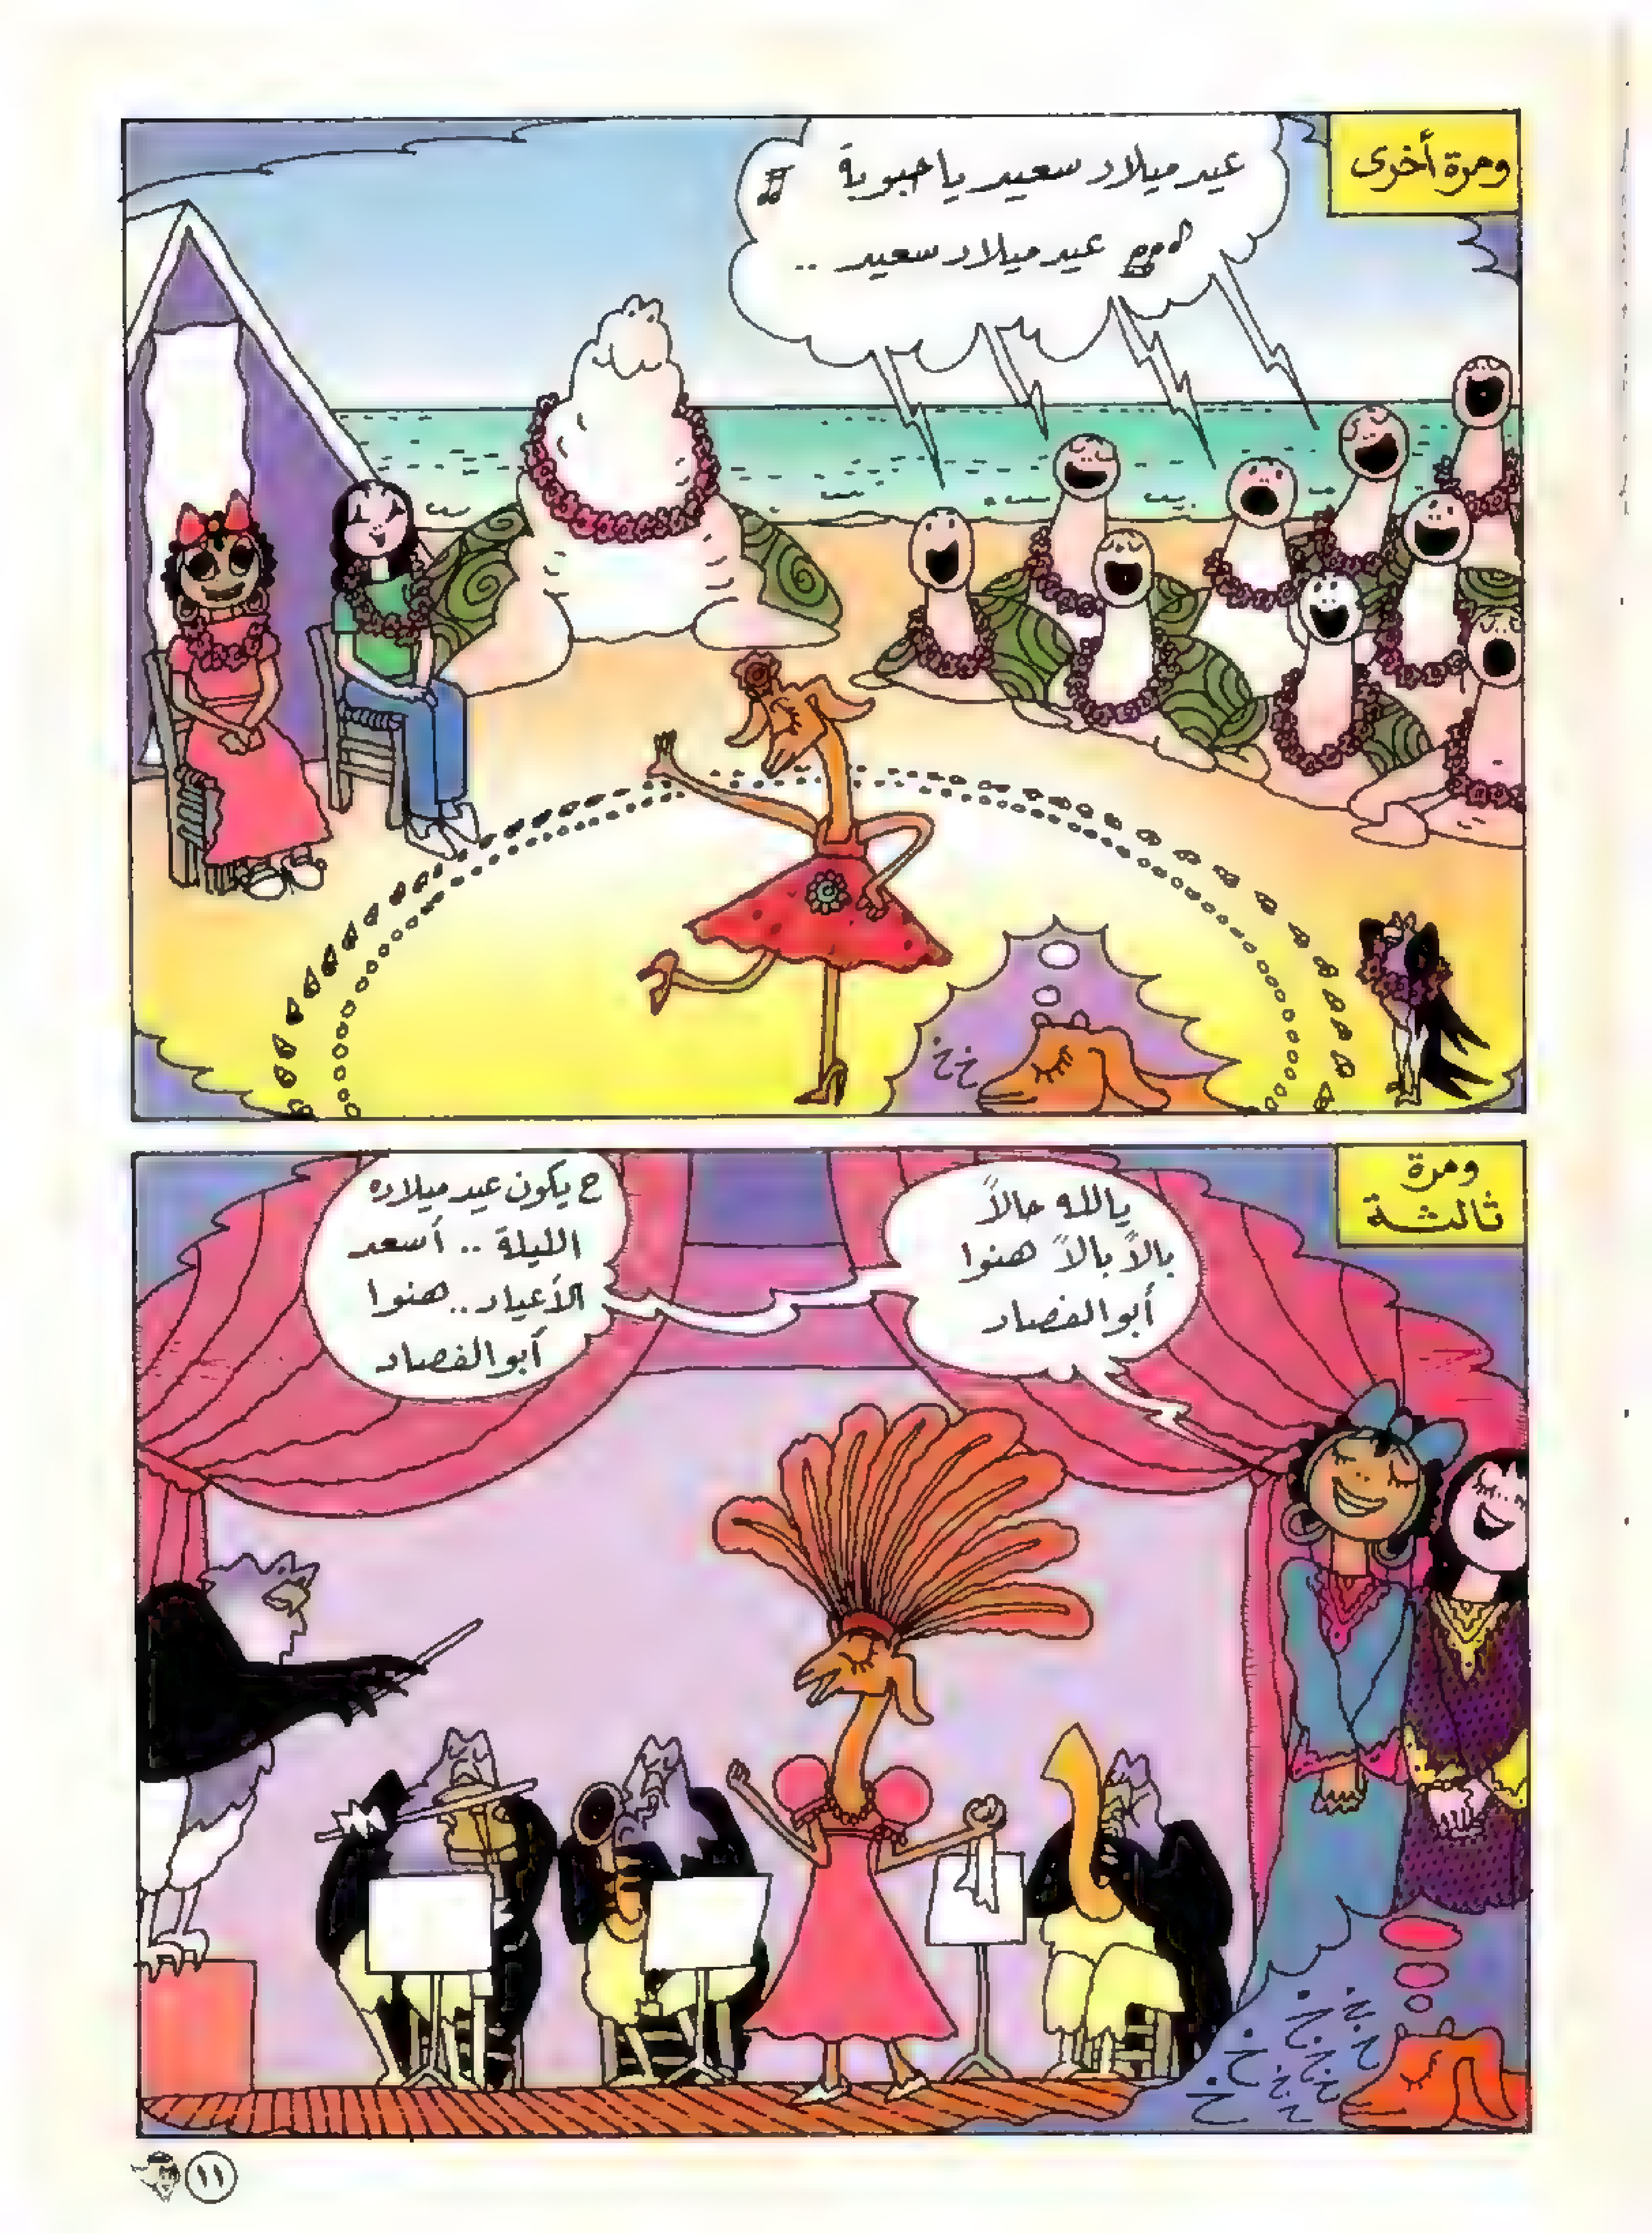 ومرة أخرى
عيد ميلاد سعيد يا حبوبة
عيد ميلاد سعيد ..
خ خ
ومرة
ثالثة
يالله حالاً
بالاً بالاً هنوا
أبو الفصاد
ح يكون عيد ميلاده
الليلة .. أسعد
الأعياد .. هنوا
أبو الفصاد
خ خ خ خ خ خ خ خ
١١